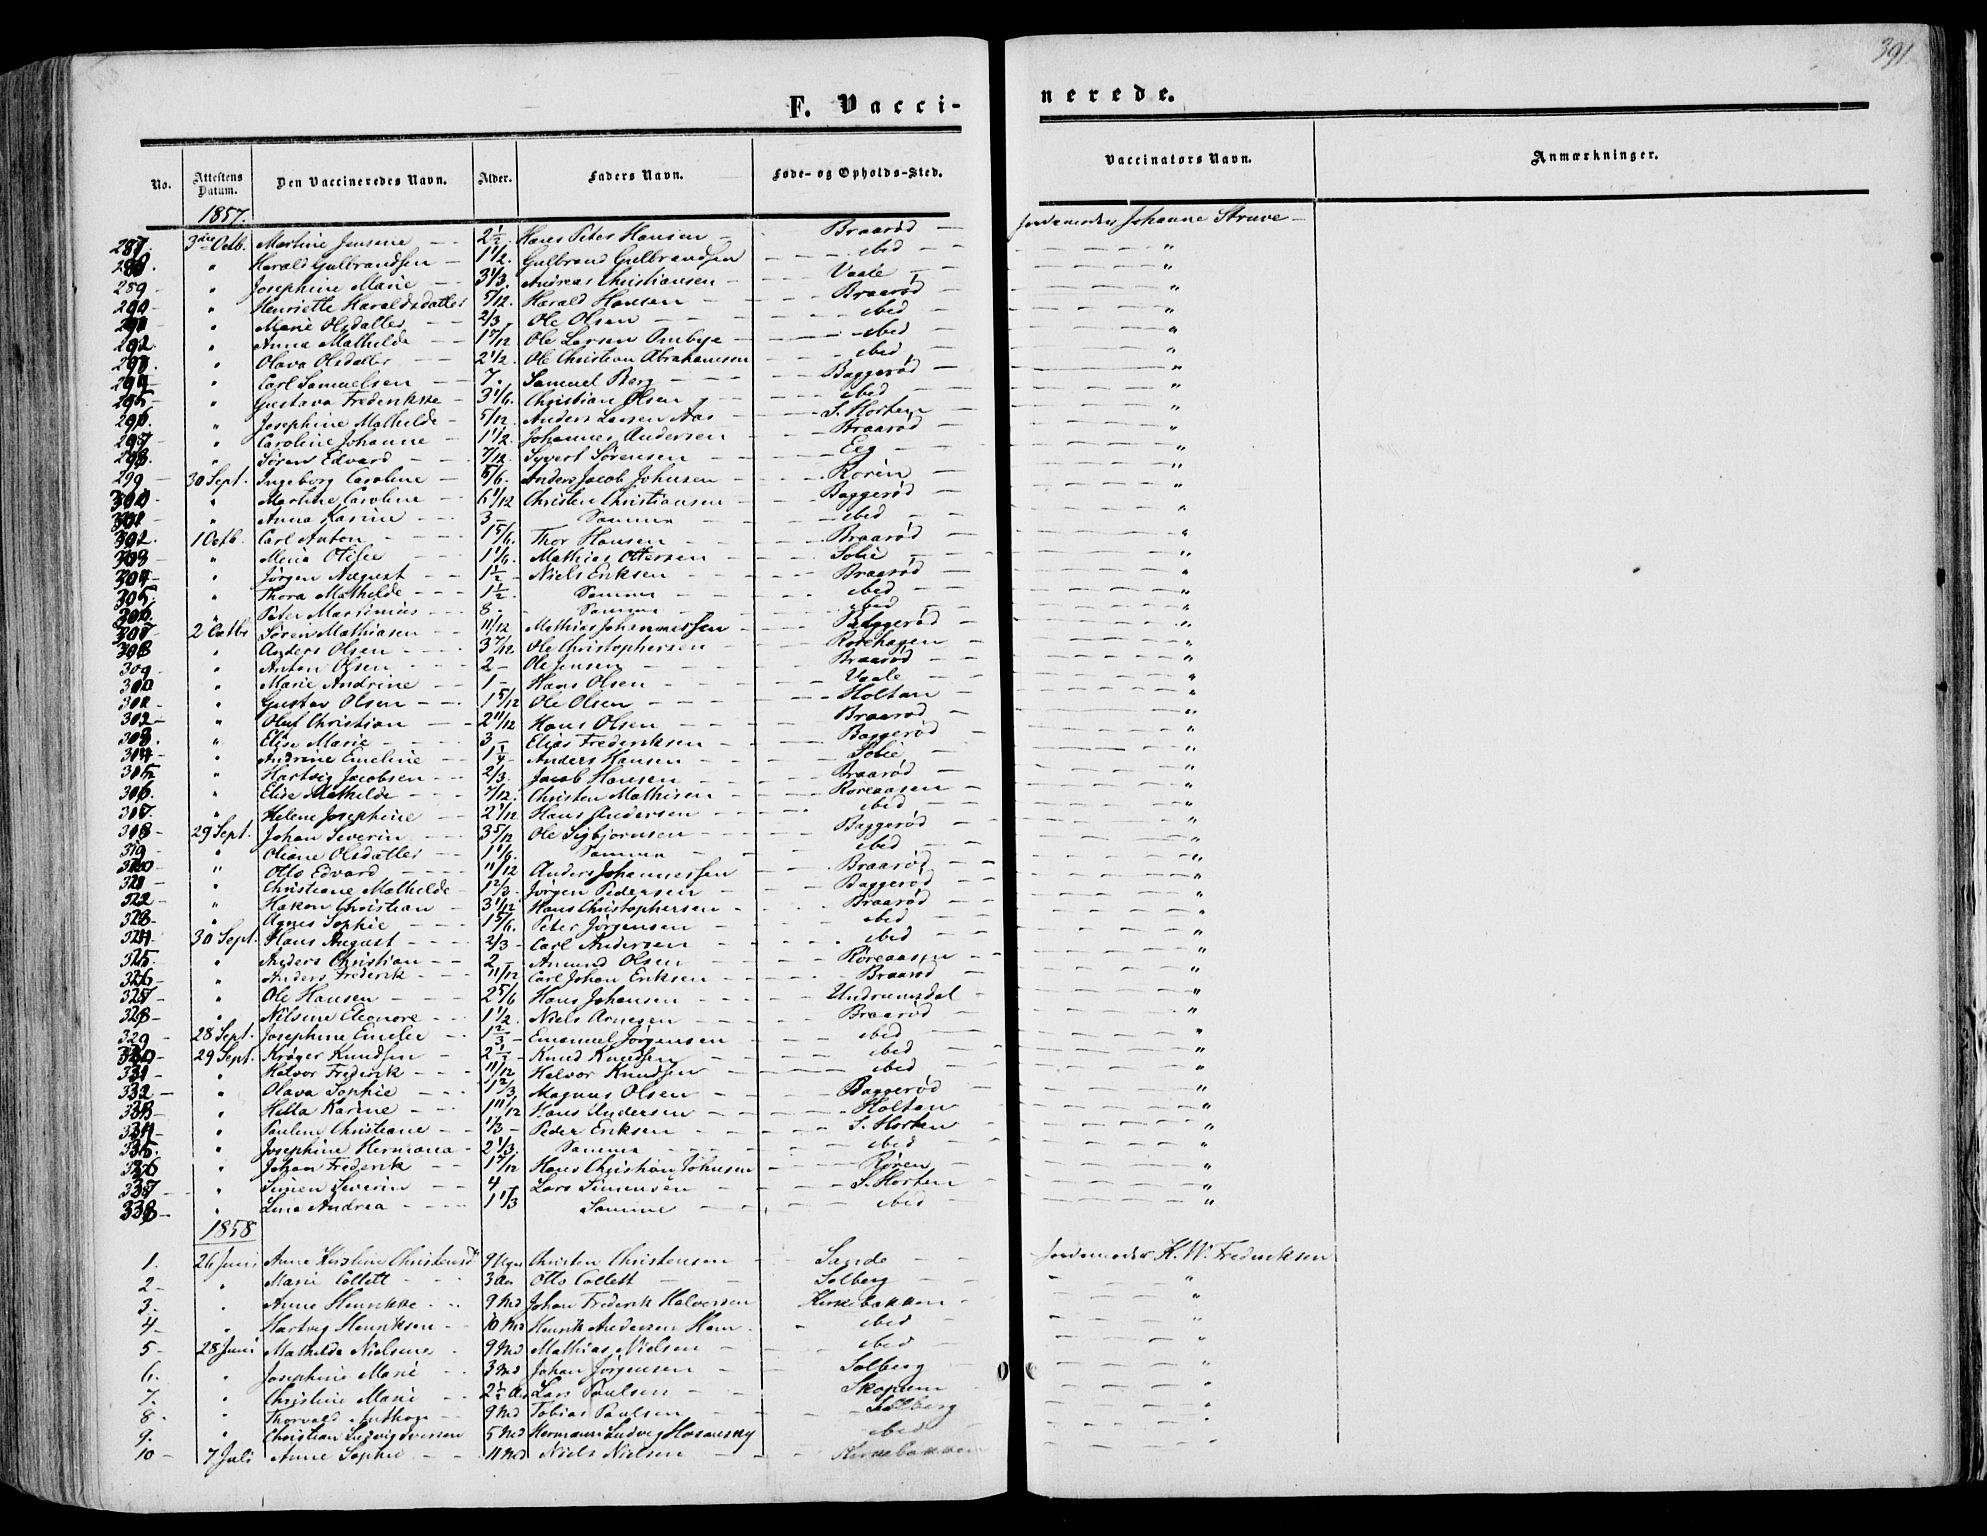 391
F. Vacci-
nerede.
No.
Attestens Datum.
Den Vaccineredes Navn.
Alder.
Faders Navn.
Føde- og Opholds-Sted.
Vaccinators Navn.
Anmærkninger.
1857.
287. 3die Octb. Martine Jensine — 2½ Hans Peter Hansen — Braarød — Johanne Struve —
288. " Harald Gulbrandsen — 1½. Gulbrand Gulbrandsen — ibid — "
289 — " Josephine Marie — 3⅓. Andreas Christiansen — Vaale — "
290 — " Henriette Haraldsdatter 5/12. Harald Hansen — Braarød — "
291 — " Marie Olsdatter — 2/3. Ole Olsen — ibid — "
292. " Anna Mathilde — 1 7/12 Ole Larsen — ibid — "
293. " Olava Olsdatter — 2½. Ole Christian Abrahamsen — ibid — "
294 — " Carl Samuelsen — 7. Samuel Berg — Baggerød — "
295 — " Gustava Frederikke — 3 1/6. Christian Olsen — ibid — "
296. " Josephine Mathilde — 5/12. Anders Larsen Aas — S. Horten — "
297 — " Caroline Johanne — 1½. Johannes Andersen — Braarød — "
298. " Søren Edvard — 7/12. Syvert Sørensen — Eeg — "
299 — 30 Sept. Ingeborg Caroline — 5/6. Anders Jacob Johnsen — Rørin — "
300 — " Martine Caroline — 6 1/12 Christen Christiansen — Baggerød — "
301 — " Anna Karine — 3 — Samme — ibid — "
302. 1 Octb. Carl Anton — 1 5/6. Thor Hansen — Braarød — "
303 — " Mina Otilie — 1 1/6. Mathias Ottersen — Solie — "
304 — " Jørgen August — 1½ — Niels Eriksen — Braarød — "
305. " Thora Mathilde — 1½. Samme — ibid — "
306. " Peter Martinius — 8. — Samme — ibid — "
307 — 2 Octbr Søren Mathiasen — 11/12 Mathias Johannessen — Baggerød — "
308 — " Anders Olsen — 3 7/12 Ole Christophersen — Rørehagen — "
309 — " Anton Olsen — 2 — Ole Jensen — Braarød — "
" Marie Andrine — 1 — Hans Olsen — Vaale — "
" Gustav Olsen — 1 5/12 Ole Olsen — Holtan — "
" Oluf Christian — 2 11/12 Hans Olsen — Braarød — "
" Elise Marie — 3 — Elias Frederiksen — Baggerød — "
" Andrine Emeline — 1¼ — Anders Hansen — Solie — "
" Hartvig Jacobsen — 2/3. Jacob Hansen — Braarød — "
" Elise Mathilde — 7/12. Christen Mathisen — Røreaasen — "
" Helene Josephine — 2 1/12 Hans Andersen — ibid — "
318 — 29 Sept. Johan Severin — 3 5/12 Ole Sigbjørnsen — Baggerød — "
319 — " Oliane Olsdatter — 1 1/6. Samme — ibid — "
320 — " Otto Edvard — 11/12 Anders Johannessen — Braarød — "
321 — " Christiane Mathilde — 1 2/3. Jørgen Pedersen — Baggerød — "
322 — " Hakon Christian — 3 1/12 Hans Christophersen — Braarød — "
323 — " Agnes Sophie — 1 5/6. Peter Jørgensen — ibid — "
324 — 30 Sept. Hans August — 2/3 — Carl Andersen — ibid — "
325 — " Anders Christian — 2 — Amund Olsen — Røreaasen — "
326 — " Anders Frederik — 11/12 Carl Johan Eriksen — Braarød — "
327 — " Ole Hansen — 2 5/6 Hans Johansen — Undrumsdal — "
328 — " Nilsine Eleonore — 1½. Niels Arnesen — Braarød — "
329 — 28 Sept. Josephine Emelie — 1 2/3 — Emanuel Jørgensen — ibid — "
330 — 29 Sept. Krøger Knudsen — 2 — Knud Knudsen — ibid — "
331 — " Halvor Frederik — 11/12 Halvor Knudsen — ibid — "
332 — " Olava Sophie — 1 2/3. Magnus Olsen — Baggerød — "
333 — " Hilla Karine — 1 11/12 Hans Andersen — Holtan — "
334 — " Pauline Christiane — 1/3 — Peder Eriksen — S. Horten — "
335. " Josephine Hermana — 2⅓. Samme — ibid — "
336 " Johan Frederik — 1 7/12 Hans Christian Johnsen — Røren — "
337 — " Simen Severin — 4 Lars Simensen — S. Horten — "
338 — " Lina Andrea — 1⅓ Samme — ibid — "
1858
1. 26 Juni Anne Kirstine Christensd 9 Christen Christensen — Sande — K. W. Fredriksen
2 — " Marie Collett — 3 Aar Otto Collett — Solberg — "
3. " Anne Henrikke — 9 Md Johan Frederik Halvorsen Kirkebakken — "
4 — " Hartvig Henriksen — 10 Md Henrik Andersen — ibid — "
5 — 28 Juni Mathilde Nielsine — 9 Md Mathias Nielsen — ibid — "
6. " Josephine Marie — 3 Md Johan Jørgensen — Solberg — "
7. " Christine Marie — 2½ Aar Lars Paulsen — Skopum — "
8 — " Thorvald Anthon — 9 Md Tobias Paulsen — Solberg — "
9. " Christian Ludvig Iversen 5 Md Hermann Ludvig — ibid — "
10 — 7 Juli Anne Sophie — 11 Md Niels Nielsen — Kirkebakken